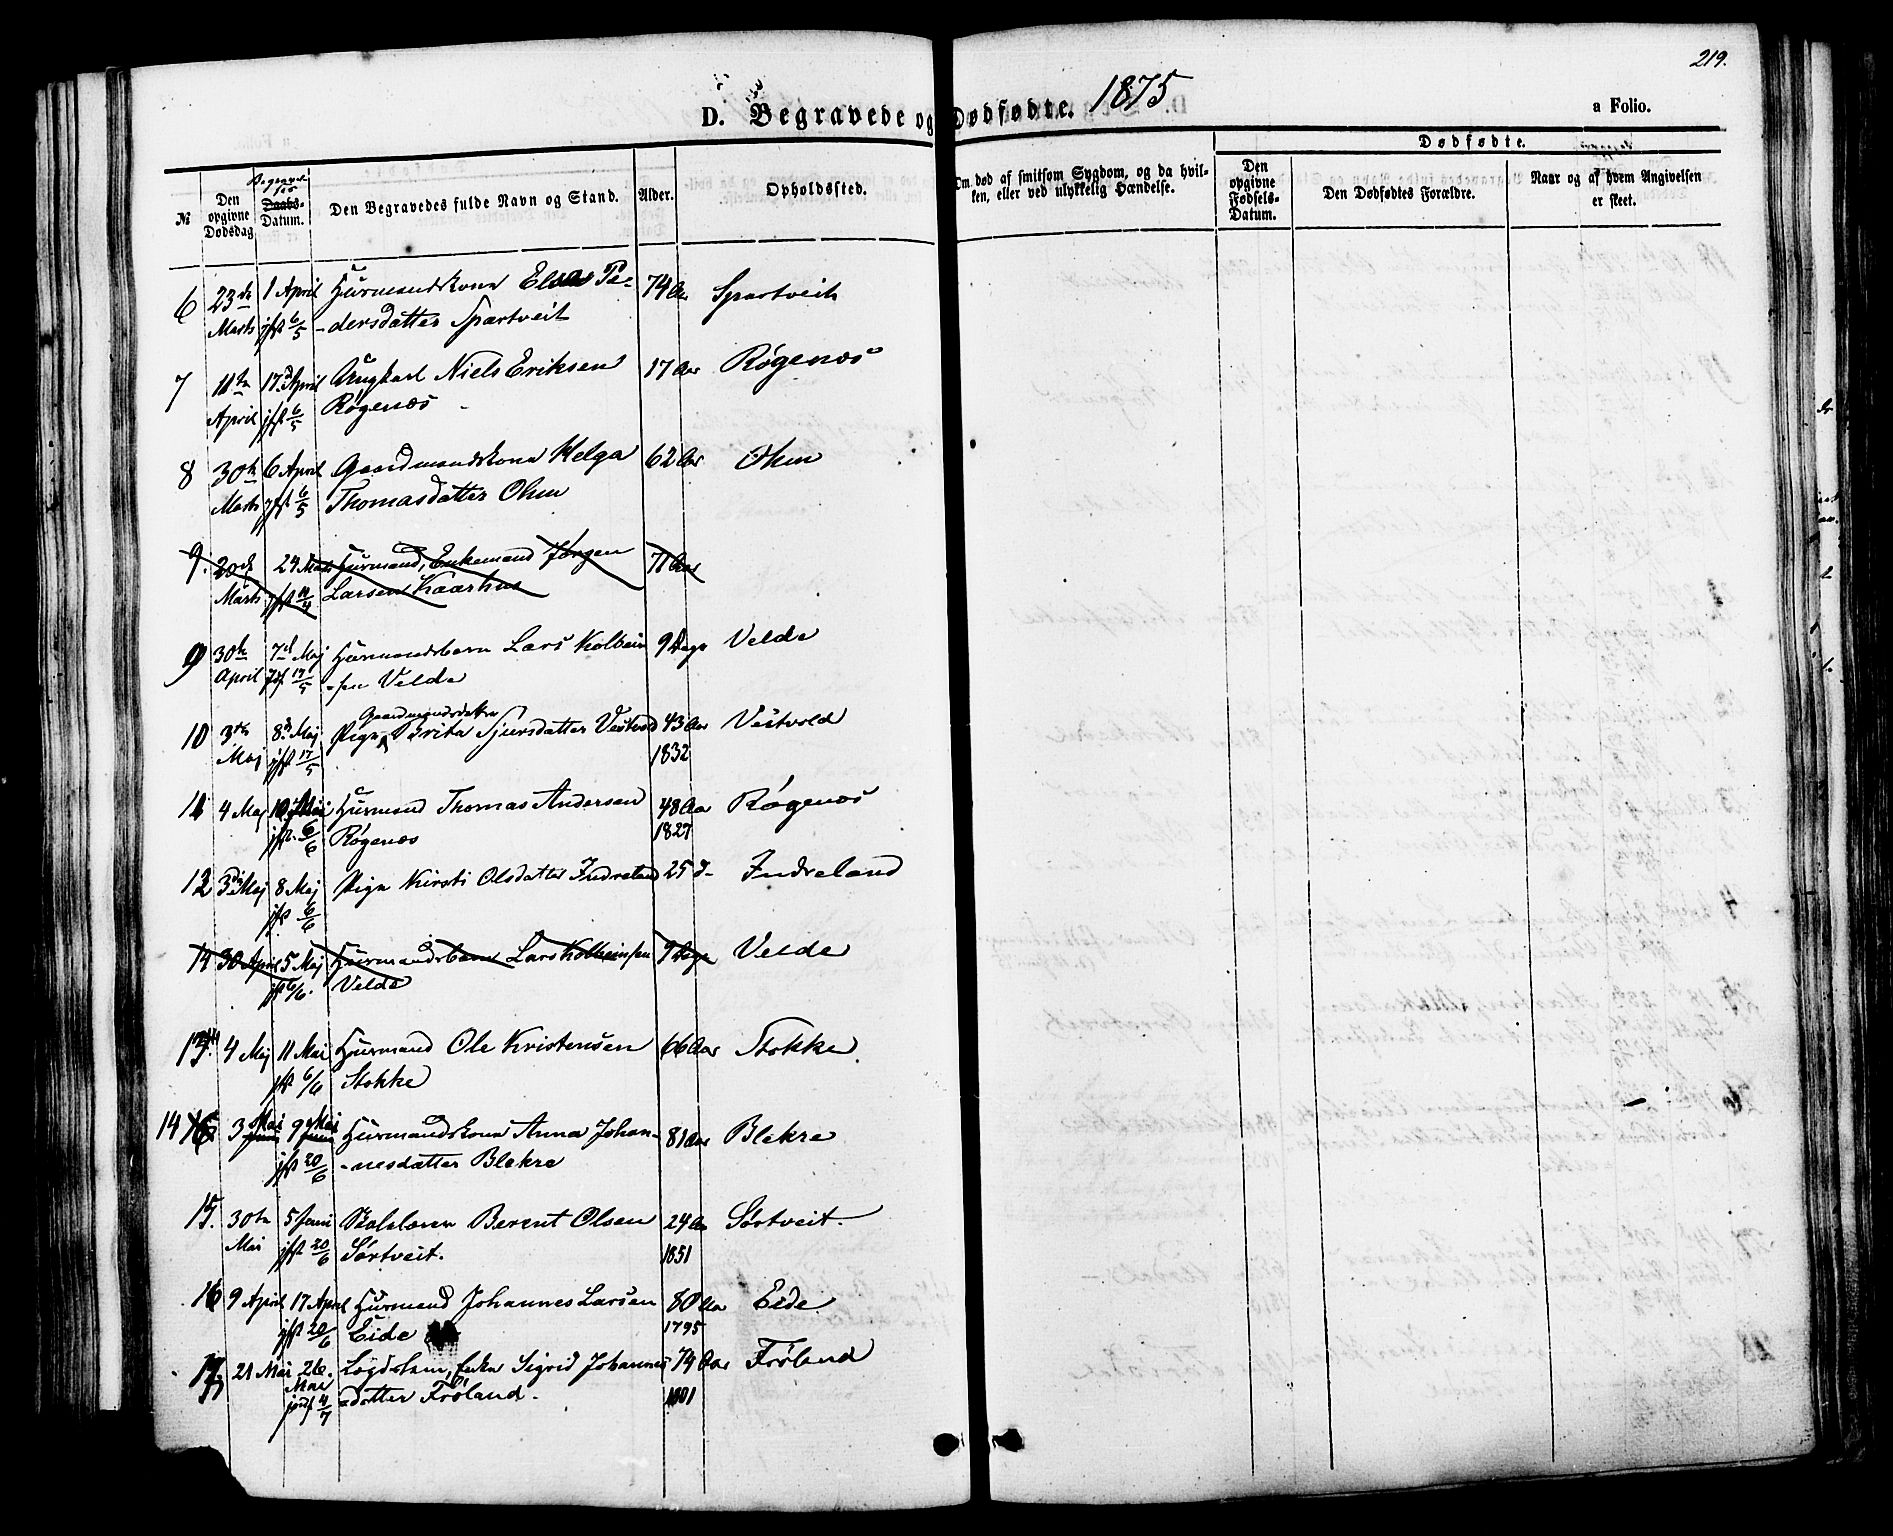 219.
D. Begravede og Dødfødte. 1875
a Folio.
№
Den opgivne Dødsdag
Begravel-
ses
Daabs-
Datum.
Den Begravedes fulde Navn og Stand.
Alder.
Opholdssted.
Om død af smitsom Sygdom, og da hvil-
ken, eller ved ulykkelig Hændelse.
Dødfødte.
Den opgivne Fødsels-Datum.
Den Dødfødtes Forældre.
Naar og af hvem Angivelsen
er skeet.
6 23de 1 April Huusmandskona Elsa Pe- 74 Aar Spartveit
Marts jfst 6/5 -dersdatter Spartveit
7 11te 17d April Ungkarl Niels Eriksen 17 Aar Røgenæs
April jfst 6/5 Røgenæs
8 30te 6 April Gaardmandskona Helga 62 Aar Ohm
Marts jfst 6/5 Thomasdatter Ohm
9. 20de 24 Marts Huusmand, Enkemand Jørgen 71 Aar
Marts jfst 11/4 Larsen Kaarhus
9 30te 7de Maj Huusmandsbarn Lars Kolbein 9 Dage Velde
April jfst 17/5 -sen Velde
Gaardmandsdatter
10 3die 8de Maj Pige Brita Sjursdatter Vestvold 43 Aar Vestvold
Maj jfst 17/5 1832
11 4 Maj 10 Maj Huusmand Thomas Andersen 48 Aar Røgenæs
jfst. 6/6 Røgenæs 1827
12 3die Maj 8 Maj Pige Kirsti Olsdatter Indreland 25 d- Indreland
jfst 6/6
14 30 April 5 Maj Huusmandsbarn Lars Kolbeinsen 9 Dage Velde
jfst 6/6. Velde
13. 4 Maj 11 Mai Huusmand Ole Kristensen 66 Aar Stokke.
jfst 6/6 Stokke
14 3 Mai 9 Mai Huusmandskona Anna Johan- 81 Aar Blekre
jfst 20/6 -nesdatter Blekre
15. 30te 5 Juni Berent Olsen 24 Aar Sørtveit.
Mai jfst 20/6 Sørtveit. 1851
16 9 April 17 April Huusmand Johannes Larsen 80 Aar Eide.
jfst 20/6 Eide 1795
17 21 Mai 26. Enke Sigrid Johannes 74 Aar Frøland
Mai
jordf 4/7 -datter Frøland. 1801